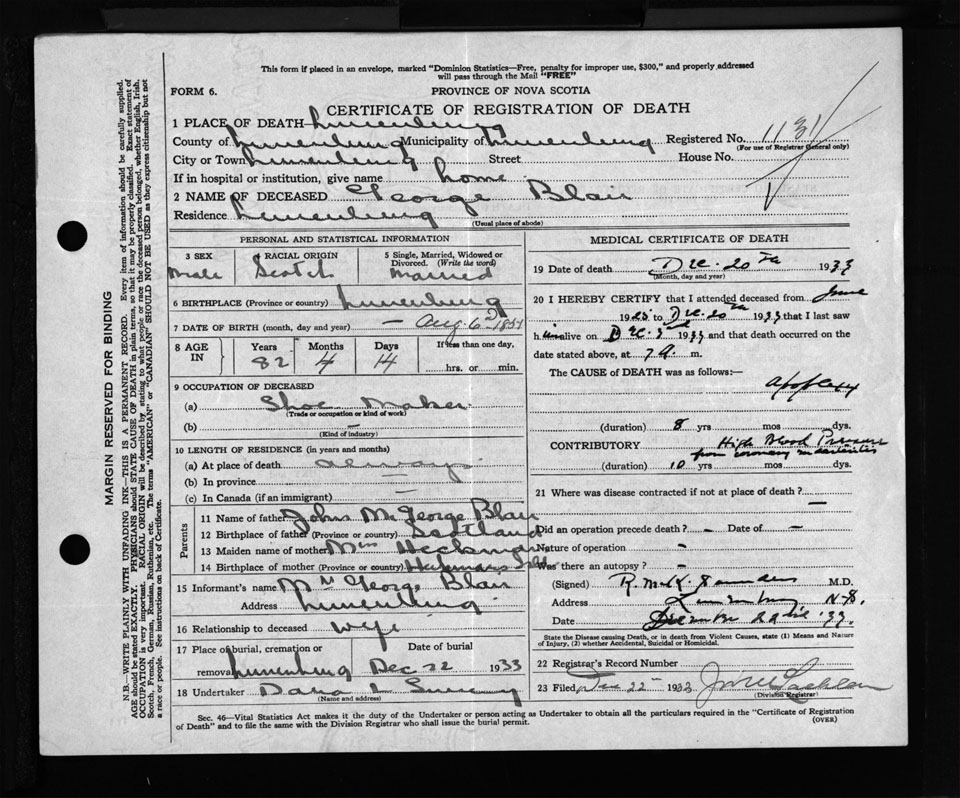 This form if placed in an envelope, marked "Dominion Statistics—Free, penalty for improper use, $300," and properly addressed
will pass through the Mail "FREE"
FORM 6.
PROVINCE OF NOVA SCOTIA
CERTIFICATE OF REGISTRATION OF DEATH
1 PLACE OF DEATH Lunenburg
County of Lunenburg Municipality of Lunenburg Registered No. 1131
(For use of Registrar General only)
City or Town Lunenburg Street House No.
If in hospital or institution, give name home
2 NAME OF DECEASED George Blair
Residence Lunenburg
(Usual place of abode)
PERSONAL AND STATISTICAL INFORMATION
3 SEX Male
RACIAL ORIGIN Scotch
5 Single, Married, Widowed or Divorced. (Write the word) Married
6 BIRTHPLACE (Province or country) Lunenburg
7 DATE OF BIRTH (month, day and year) — Aug. 6 1851
8 AGE IN Years 82 Months 4 Days 14 If less than one day, hrs. or min.
9 OCCUPATION OF DECEASED
(a) Shoe Maker
(Trade or occupation or kind of work)
(b) —
(Kind of industry)
10 LENGTH OF RESIDENCE (in years and months)
(a) At place of death always
(b) In province
(c) In Canada (if an immigrant) —
Parents
11 Name of father John Mc George Blair
12 Birthplace of father (Province or country) Scotland
13 Maiden name of mother Heckman
14 Birthplace of mother (Province or country)
15 Informant's name Mrs George Blair
Address Lunenburg
16 Relationship to deceased wife
17 Place of burial, cremation or removal Lunenburg Date of burial Dec 22 1933
18 Undertaker
(Name and address)
MEDICAL CERTIFICATE OF DEATH
19 Date of death Dec. 20th 1933
(Month, day and year)
20 I HEREBY CERTIFY that I attended deceased from June
1925 to Dec. 20th 1933 that I last saw
him alive on Dec. 1933 and that death occurred on the
date stated above, at 7 a. m.
The CAUSE of DEATH was as follows:—
Apoplexy
(duration) 8 yrs mos dys.
CONTRIBUTORY High Blood Pressure
from coronary
(duration) 10 yrs mos dys.
21 Where was disease contracted if not at place of death?
—
Did an operation precede death? – Date of –
Nature of operation –
Was there an autopsy? –
(Signed) R. McK. Saunders M.D.
Address Lunenburg N.S.
Date '33.
State the Disease causing Death, or in death from Violent Causes, state (1) Means and Nature
of Injury, (2) whether Accidental, Suicidal or Homicidal.
22 Registrar's Record Number
23 Filed Dec 22 1933
(Division Registrar)
Sec. 46—Vital Statistics Act makes it the duty of the Undertaker or person acting as Undertaker to obtain all the particulars required in the "Certificate of Registration
of Death" and to file the same with the Division Registrar who shall issue the burial permit.
(OVER)
MARGIN RESERVED FOR BINDING
N.B.—WRITE PLAINLY WITH UNFADING INK—THIS IS A PERMANENT RECORD. Every item of information should be carefully supplied.
AGE should be stated EXACTLY. PHYSICIANS should STATE CAUSE OF DEATH in plain terms, so that it may be properly classified. Exact statement of
OCCUPATION is very important. RACIAL ORIGIN will be described by stating to what people or race the deceased person belonged, whether English, Irish,
Scotch, French, German, Russian, Ruthenian, etc. The terms "AMERICAN" or "CANADIAN" SHOULD NOT BE USED as they express citizenship but not
a race or people. See instructions on back of Certificate.